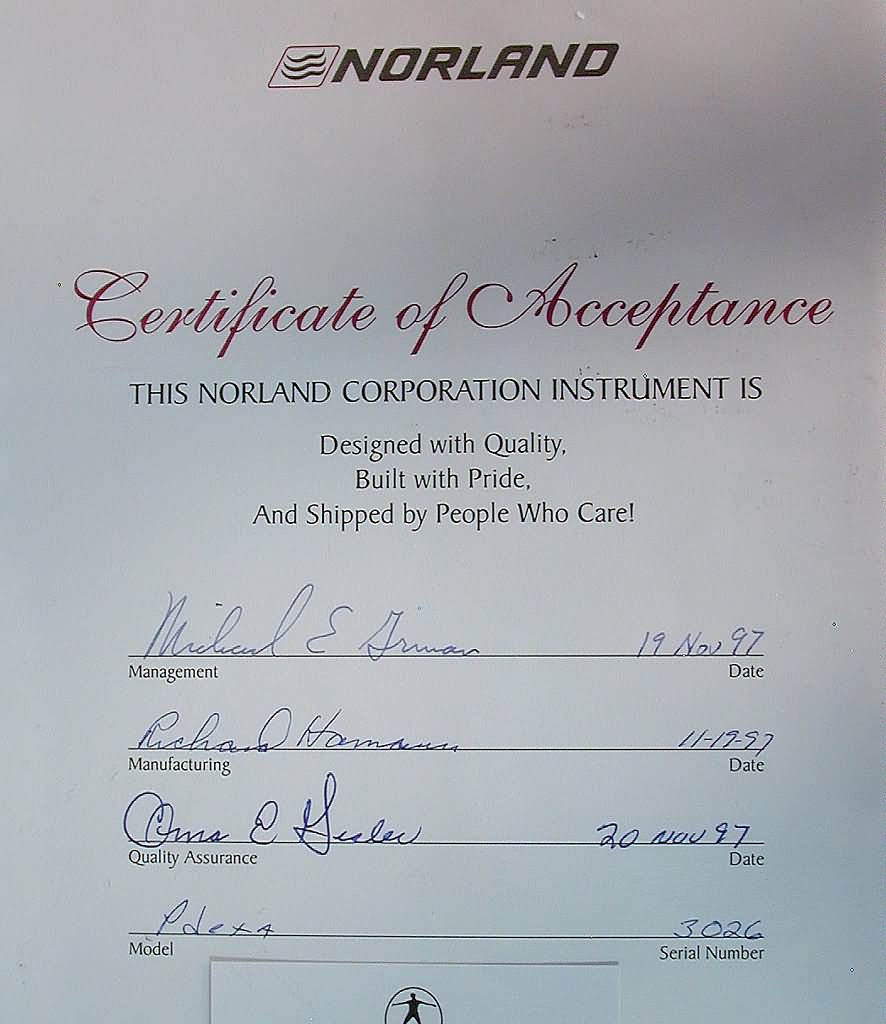 NORLAND
Certificate of Acceptance
THIS NORLAND CORPORATION INSTRUMENT IS
Designed with Quality,
Built with Pride,
And Shipped by People Who Care!
Michael E 19 Nov 97
Management Date
Richard Hamann 11-19-97
Manufacturing Date
E 20 Nov 97
Quality Assurance Date
Pdexa 3026
Model Serial Number